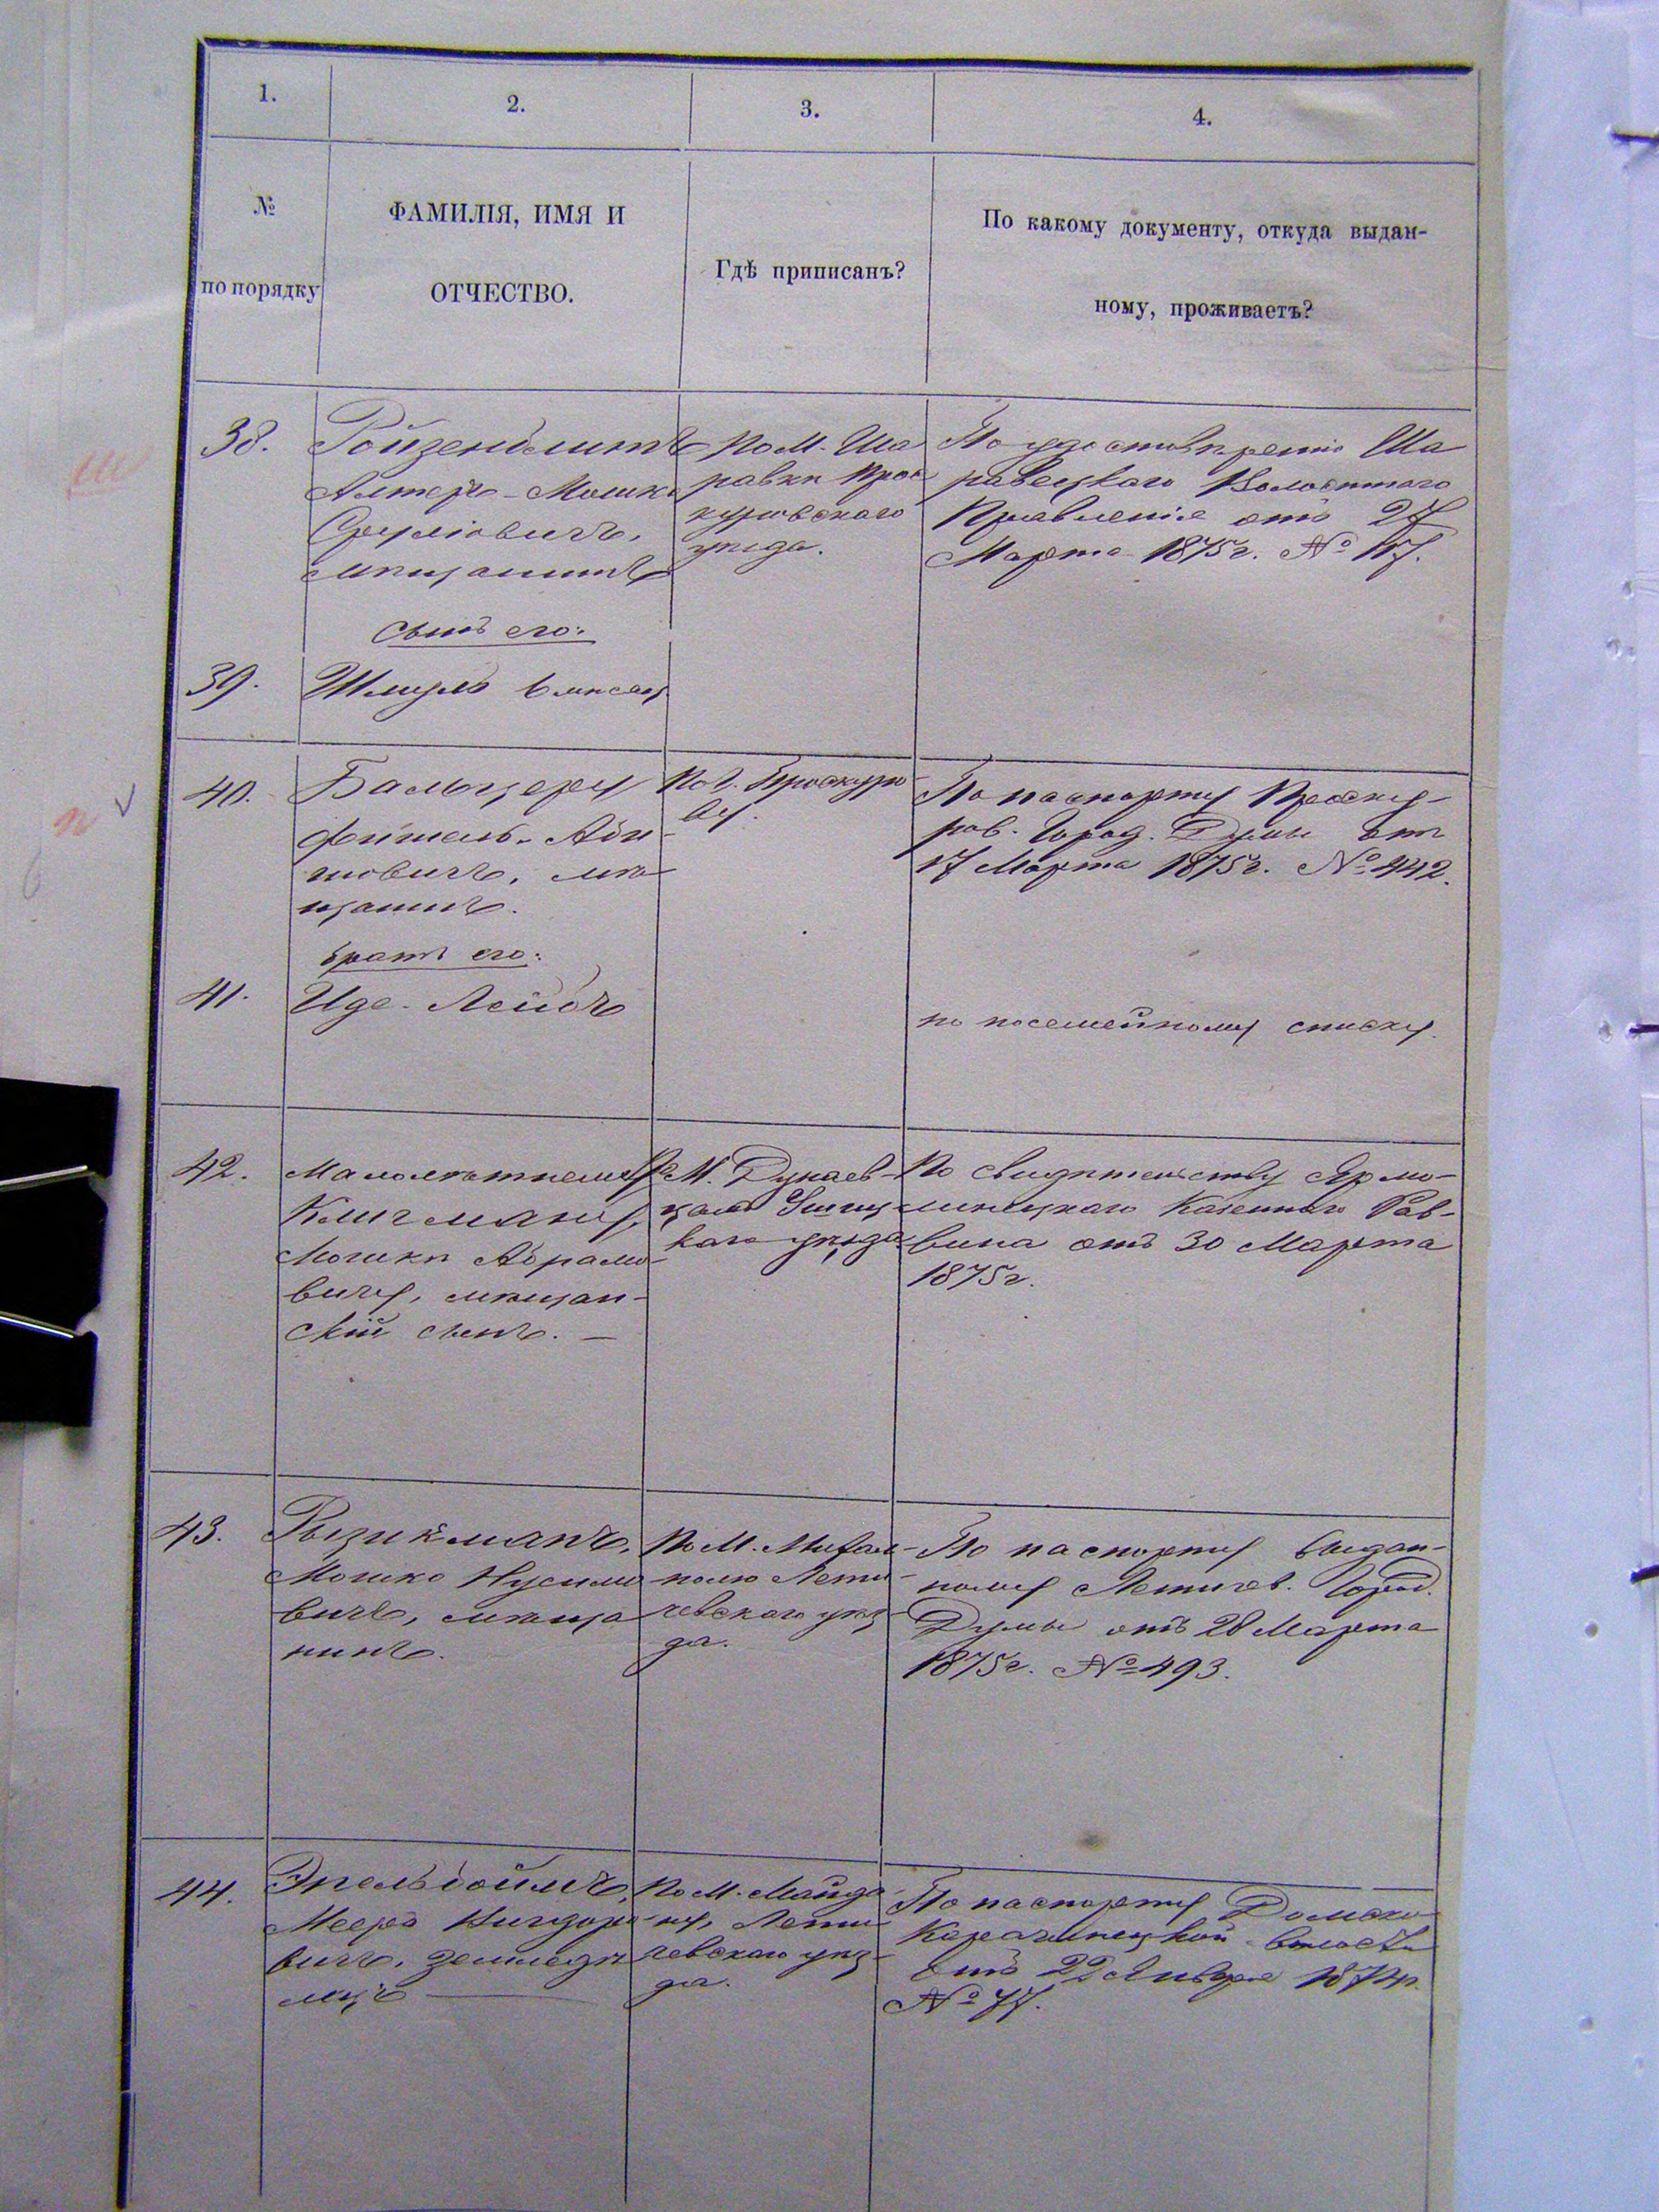 1.
2.
3.
4.
№
по порядку
ФАМИЛІЯ, ИМЯ И
ОТЧЕСТВО.
Гдѣ приписанъ?
По какому документу, откуда выдан-
ному, проживаетъ?
38.
Ройзенблитъ
Алтеръ-Мошко
Сруліовичъ,
мѣщанинъ
По М. Ша
равкѣ Прос
куровскаго
уѣзда.
По удостовѣренію Ша
равецкаго Волостнаго
Правленія отъ 27
Марта 1875г. №
сынъ его:
39.
Шмуль 6 мѣсяц
40.
Бальцеру
Фишель-Аби
мѣ
щанинъ.
По Г. Проскуро
ву.
По паспорту Проску-
ров. Город. Думы отъ
17 Марта 1875г. № 442.
братъ его:
41.
Иде-Лейбъ
по посемейному списку.
42.
Малолѣтнему
Кличману,
Мошкѣ Абрамо-
вичу, мѣщан-
скій сынъ. —
М. Дунаев-
цамъ Ушиц
каго уѣзда
По свидѣтельству Ярмо-
линецкаго Казеннаго Рав-
вина отъ 30 Марта
1875г.
43.
Рызикманъ,
Мошко Нусимо
вичъ, мѣща
нинъ.
По М. Михал-
полю Лети-
чевскаго уѣз-
да.
По паспорту выдан-
ному Летичев. Город.
Думы отъ 28 Марта
1875г. № 493.
44.
Эпельбоймъ,
Мееръ
вичъ, земледѣ
лецъ
По М. Майда
ну, Лети
чевскаго уѣз-
да.
По паспорту
Карачинецкой волости
отъ 22 Января
№ 77.